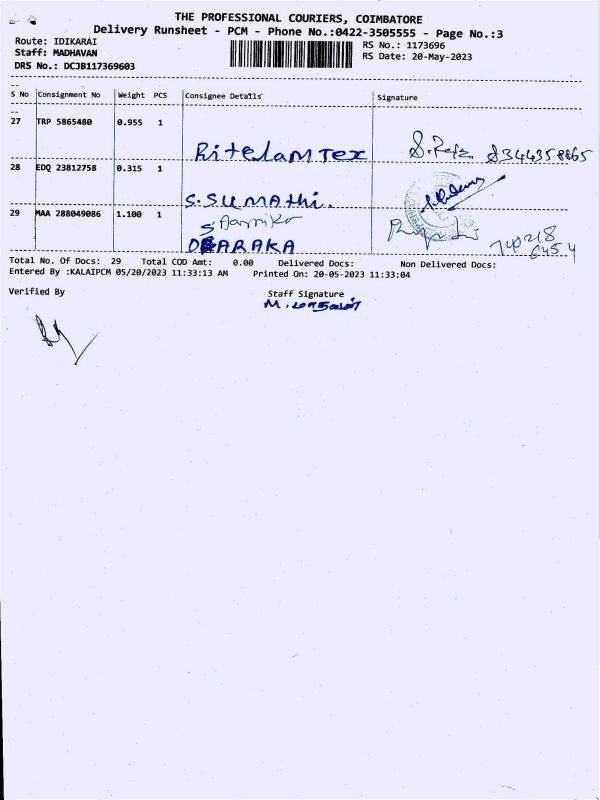 THE PROFESSIONAL COURIERS, COIMBATORE
Delivery Runsheet - PCM - Phone No.:0422-3505555 - Page No.:3
Route: IDIKARAI
RS No.: 1173696
Staff: MADHAVAN
RS Date: 20-May-2023
DRS No.: DCJB117369603
S No Consignment No Weight PCS Consignee Details Signature
27 TRP 5865480 0.955 1
RitelamTex
28 EDQ 23812758 0.315 1
S.SUMAthi.
29 MAA 288049086 1.100 1
Total No. Of Docs: 29 Total COD Amt: 0.00 Delivered Docs: Non Delivered Docs:
Entered By :KALAIPCM 05/20/2023 11:33:13 AM Printed On: 20-05-2023 11:33:04
Verified By Staff Signature